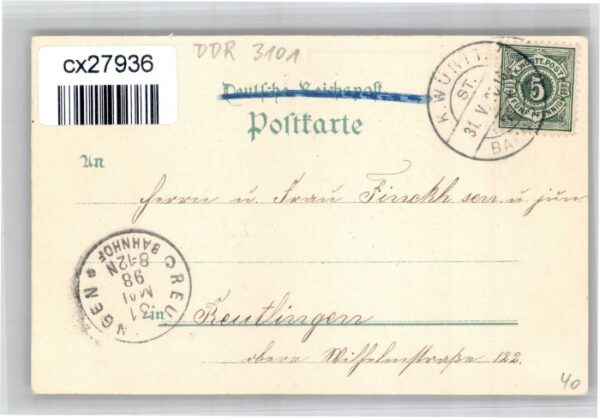 cx27936
DDR 3101
Deutsche Reichspost
Postkarte
K. WÜRTT.
ST.
31 V
BA
K. WÜRTT. POST
5
FÜNF PFENNIG
An
Herrn u. Frau Finckh sen. u. jun
REU NGEN
BAHNHOF
8-12N
98
MAI
31
in Reutlingen
obere Wilhelmstraße 122.
40